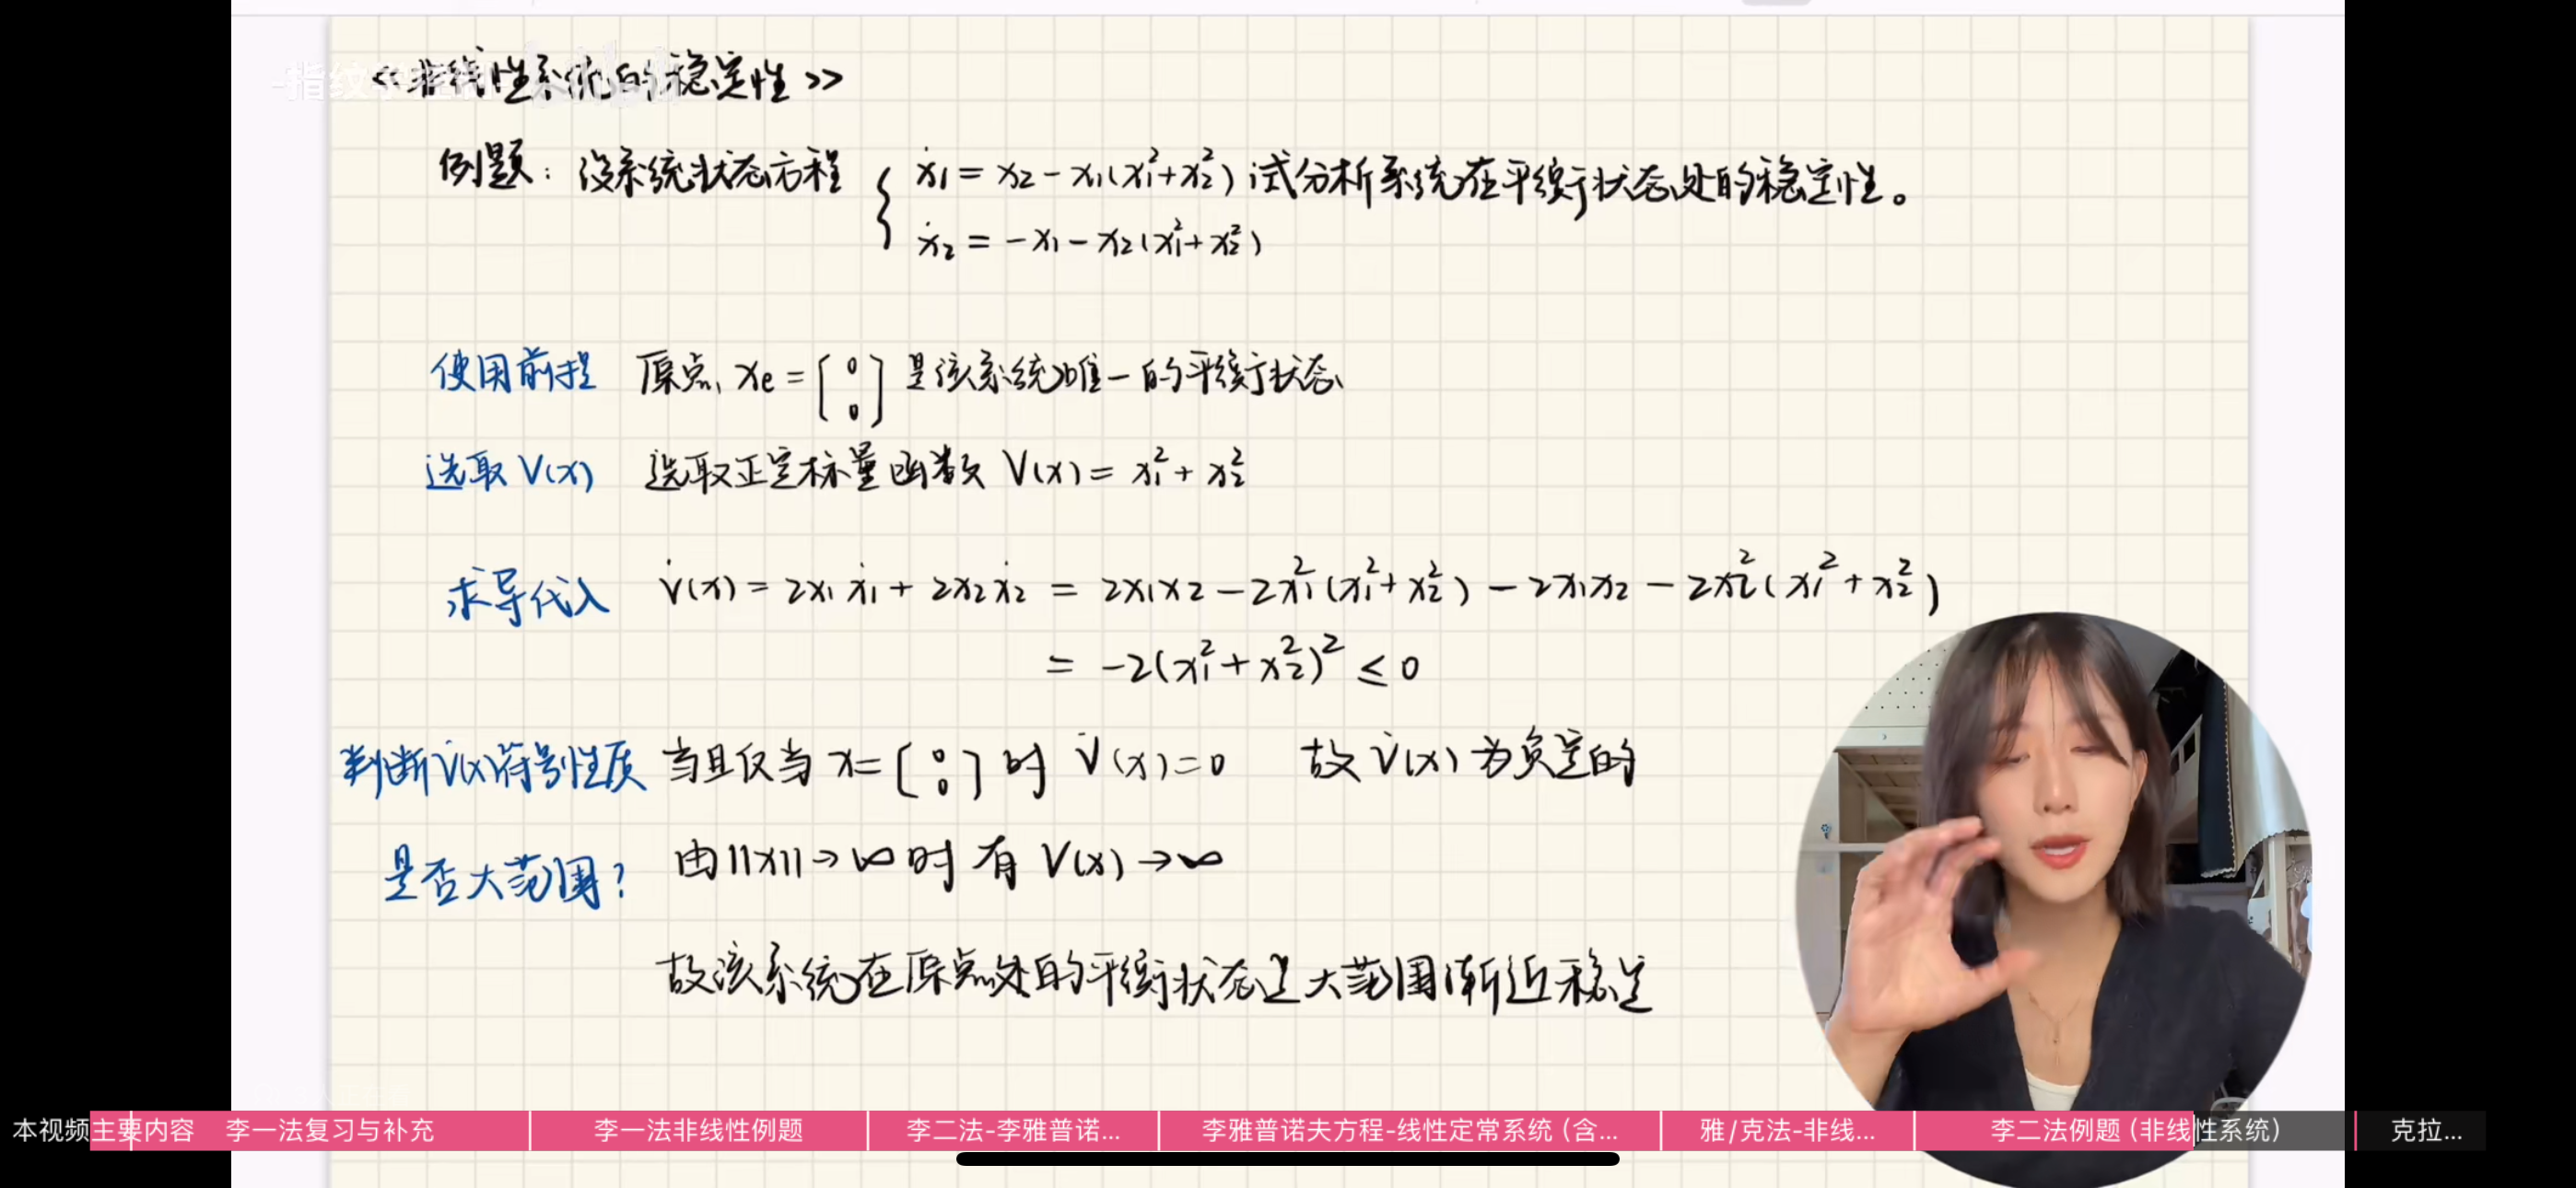 <<非线性系统的稳定性>>
例题：设系统状态方程 { ẋ1 = x2 - x1(x1²+x2²) 试分析系统在平衡状态处的稳定性。
ẋ2 = -x1 - x2(x1²+x2²)
使用前提 原点 xe = [0 0] 是该系统唯一的平衡状态
选取 V(x) 选取正定标量函数 V(x) = x1² + x2²
求导代入 V̇(x) = 2x1ẋ1 + 2x2ẋ2 = 2x1x2 - 2x1²(x1²+x2²) - 2x1x2 - 2x2²(x1²+x2²)
= -2(x1²+x2²)² ≤ 0
判断V̇(x)符号性质 当且仅当 x=[0 0] 时 V̇(x)=0 故 V̇(x) 为负定的
是否大范围? 由||x||→∞时 有 V(x)→∞
故该系统在原点处的平衡状态是大范围渐近稳定
本视频主要内容 李一法复习与补充 李一法非线性例题 李二法-李雅普诺... 李雅普诺夫方程-线性定常系统（含... 雅/克法-非线... 李二法例题（非线性系统） 克拉...